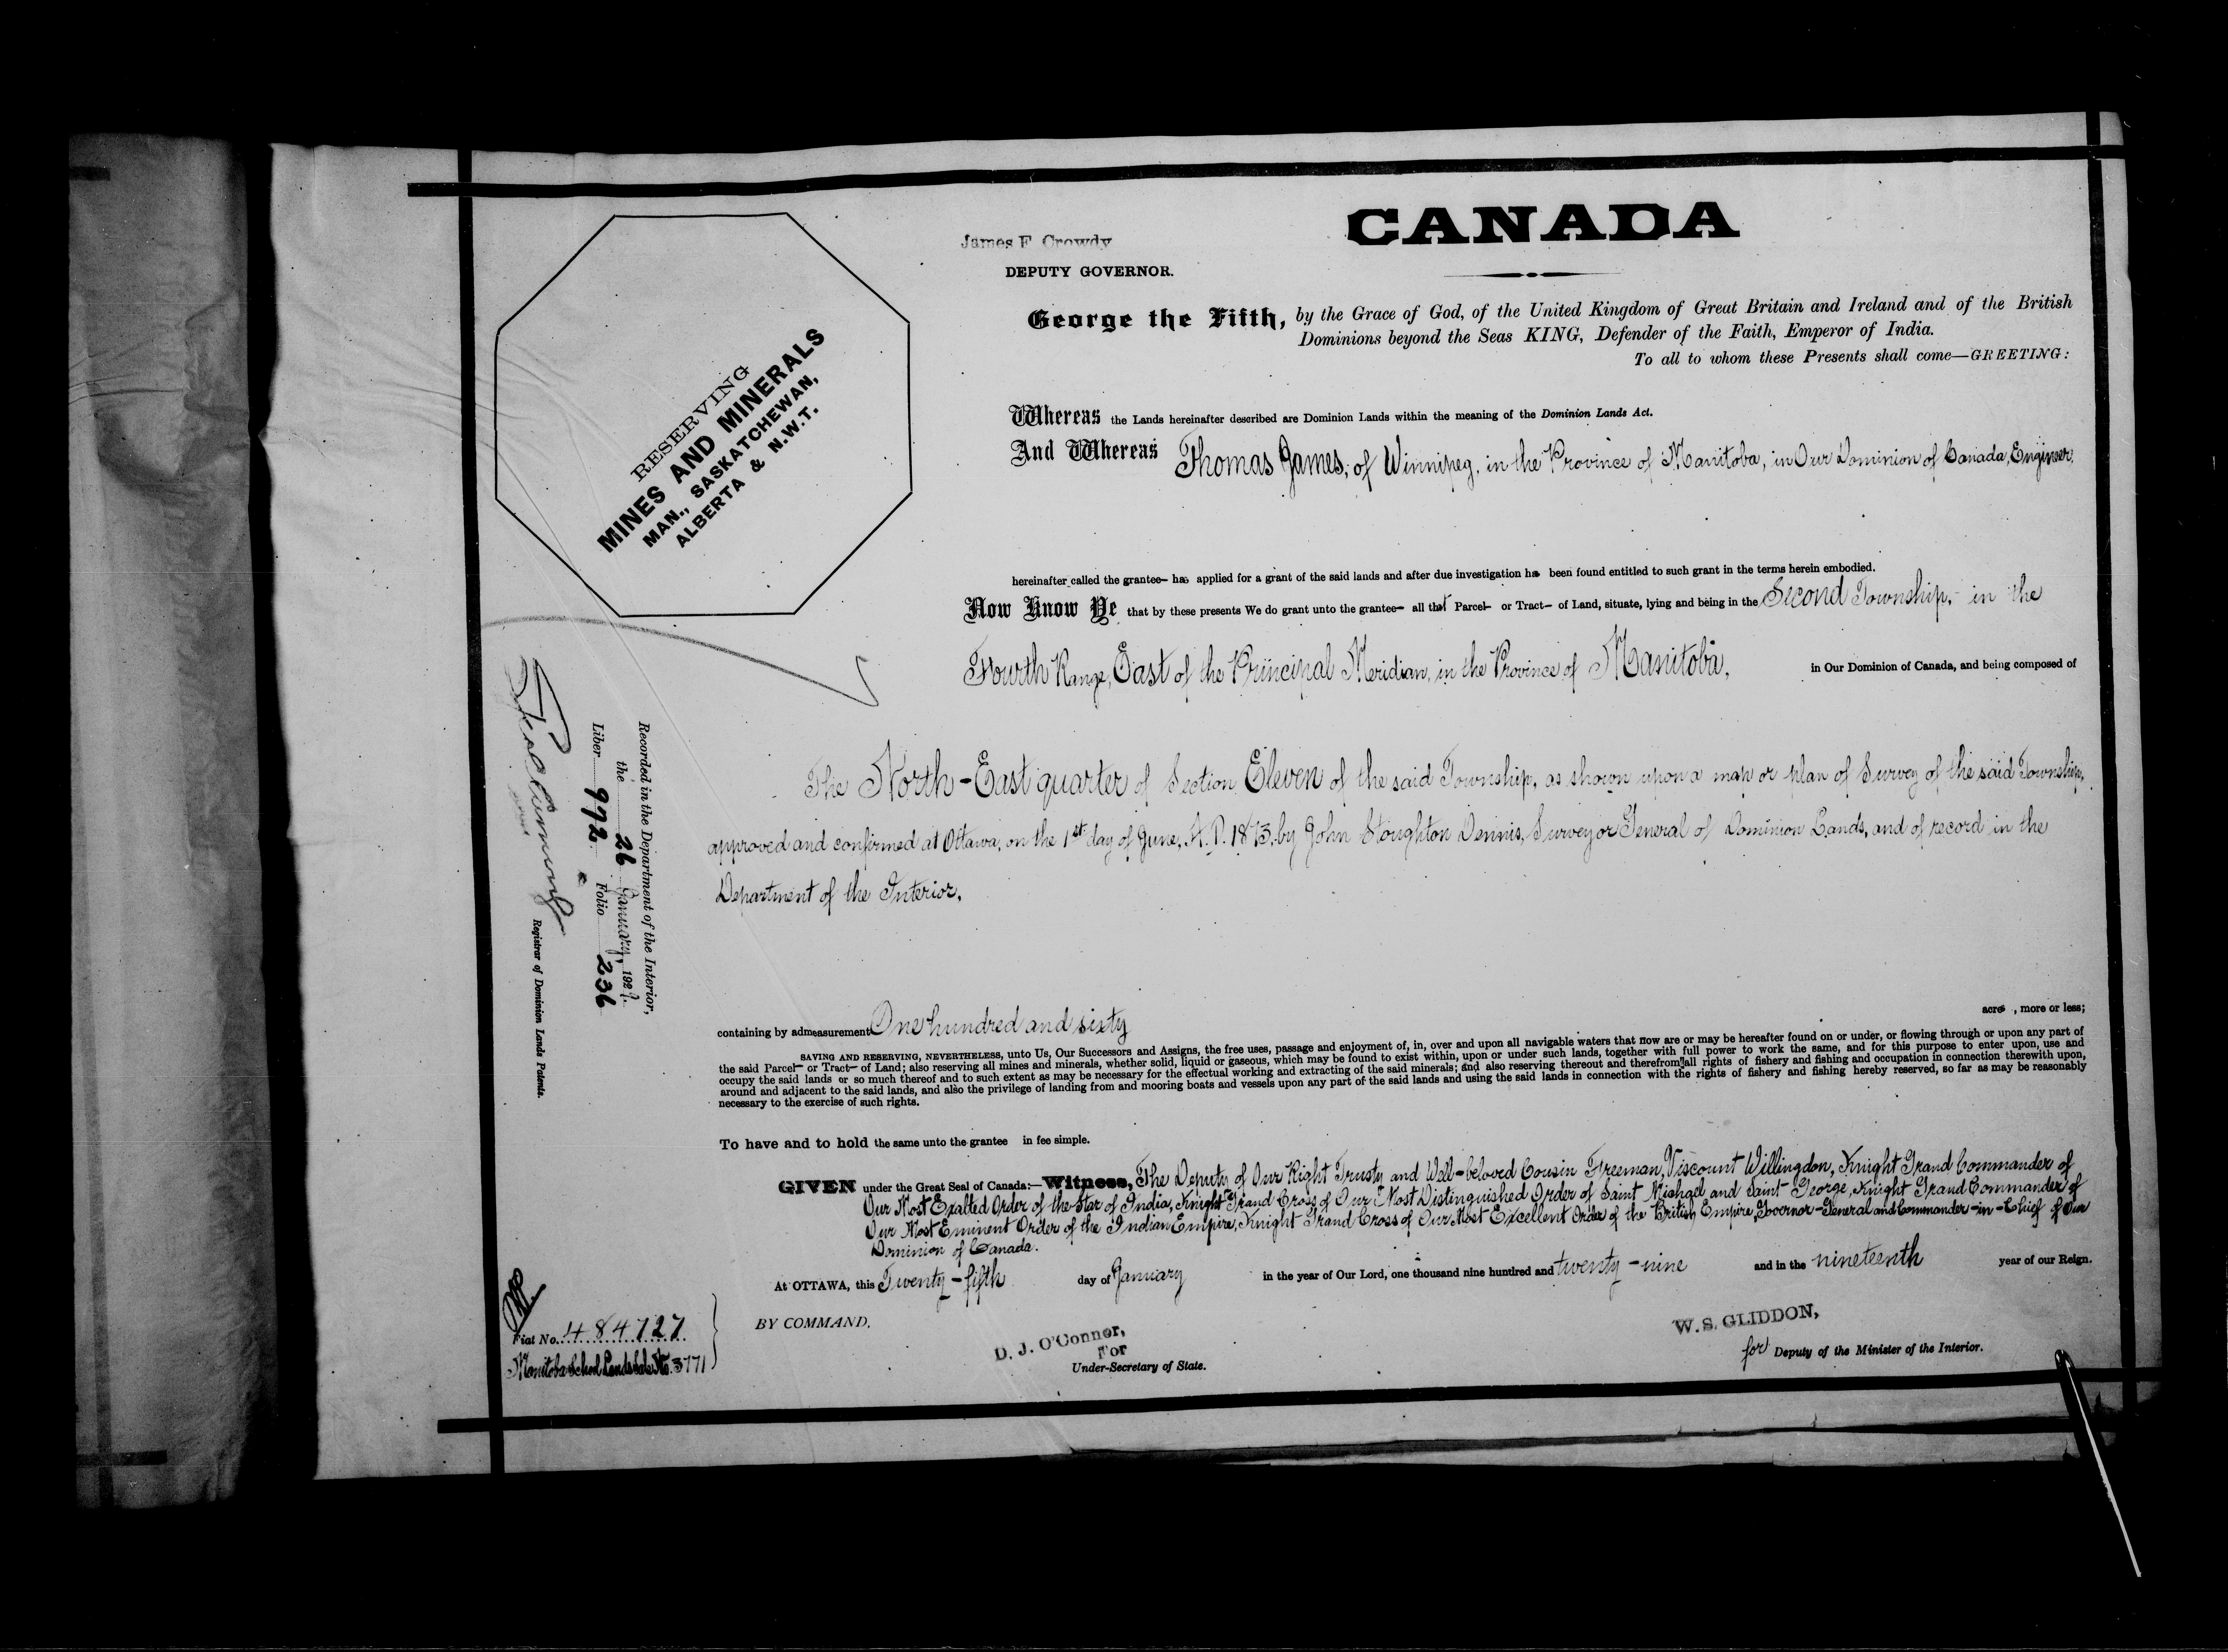 CANADA
James F. Crowdy
DEPUTY GOVERNOR.
George the Fifth, by the Grace of God, of the United Kingdom of Great Britain and Ireland and of the British
Dominions beyond the Seas KING, Defender of the Faith, Emperor of India.
To all to whom these Presents shall come—GREETING:
RESERVING
MINES AND MINERALS
MAN., SASKATCHEWAN,
ALBERTA & N.W.T.
Whereas the Lands hereinafter described are Dominion Lands within the meaning of the Dominion Lands Act.
And Whereas Thomas James, of Winnipeg, in the Province of Manitoba, in Our Dominion of Canada, Engineer.
hereinafter called the grantee— has applied for a grant of the said lands and after due investigation has been found entitled to such grant in the terms herein embodied.
Now Know Ye that by these presents We do grant unto the grantee— all that Parcel— or Tract— of Land, situate, lying and being in the Second Township, in the
Fourth Range, East of the Principal Meridian, in the Province of Manitoba, in Our Dominion of Canada, and being composed of
The North-East quarter of Section Eleven of the said Township, as shown upon a map or plan of Survey of the said Township,
approved and confirmed at Ottawa, on the 1st day of June, A.D. 1873, by John Stoughton Dennis, Surveyor General of Dominion Lands, and of record in the
Department of the Interior.
containing by admeasurement One hundred and sixty acres , more or less;
SAVING AND RESERVING, NEVERTHELESS, unto Us, Our Successors and Assigns, the free uses, passage and enjoyment of, in, over and upon all navigable waters that now are or may be hereafter found on or under, or flowing through or upon any part of
the said Parcel— or Tract— of Land; also reserving all mines and minerals, whether solid, liquid or gaseous, which may be found to exist within, upon or under such lands, together with full power to work the same, and for this purpose to enter upon, use and
occupy the said lands or so much thereof and to such extent as may be necessary for the effectual working and extracting of the said minerals; and also reserving thereout and therefrom all rights of fishery and fishing and occupation in connection therewith upon,
around and adjacent to the said lands, and also the privilege of landing from and mooring boats and vessels upon any part of the said lands and using the said lands in connection with the rights of fishery and fishing hereby reserved, so far as may be reasonably
necessary to the exercise of such rights.
To have and to hold the same unto the grantee in fee simple.
GIVEN under the Great Seal of Canada:—Witness, The Deputy of Our Right Trusty and Well-beloved Cousin Freeman, Viscount Willingdon, Knight Grand Commander of
Our Most Exalted Order of the Star of India, Knight Grand Cross of Our Most Distinguished Order of Saint Michael and Saint George, Knight Grand Commander of
Our Most Eminent Order of the Indian Empire, Knight Grand Cross of Our Most Excellent Order of the British Empire, Governor-General and Commander-in-Chief of Our
Dominion of Canada.
At OTTAWA, this Twenty-fifth day of January in the year of Our Lord, one thousand nine hundred and twenty-nine and in the nineteenth year of our Reign.
BY COMMAND,
D. J. O'Connor,
For
Under-Secretary of State.
W. S. GLIDDON,
for Deputy of the Minister of the Interior.
Recorded in the Department of the Interior,
the 26 January, 1929.
Liber 992 Folio 236
Registrar of Dominion Lands Patents.
Fiat No. 484727
Manitoba School Lands Sale No. 3771